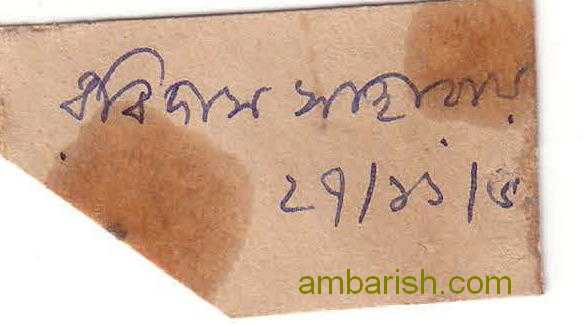 রবিদাস সাহারায়
২৭/১১/৬
ambarish.com